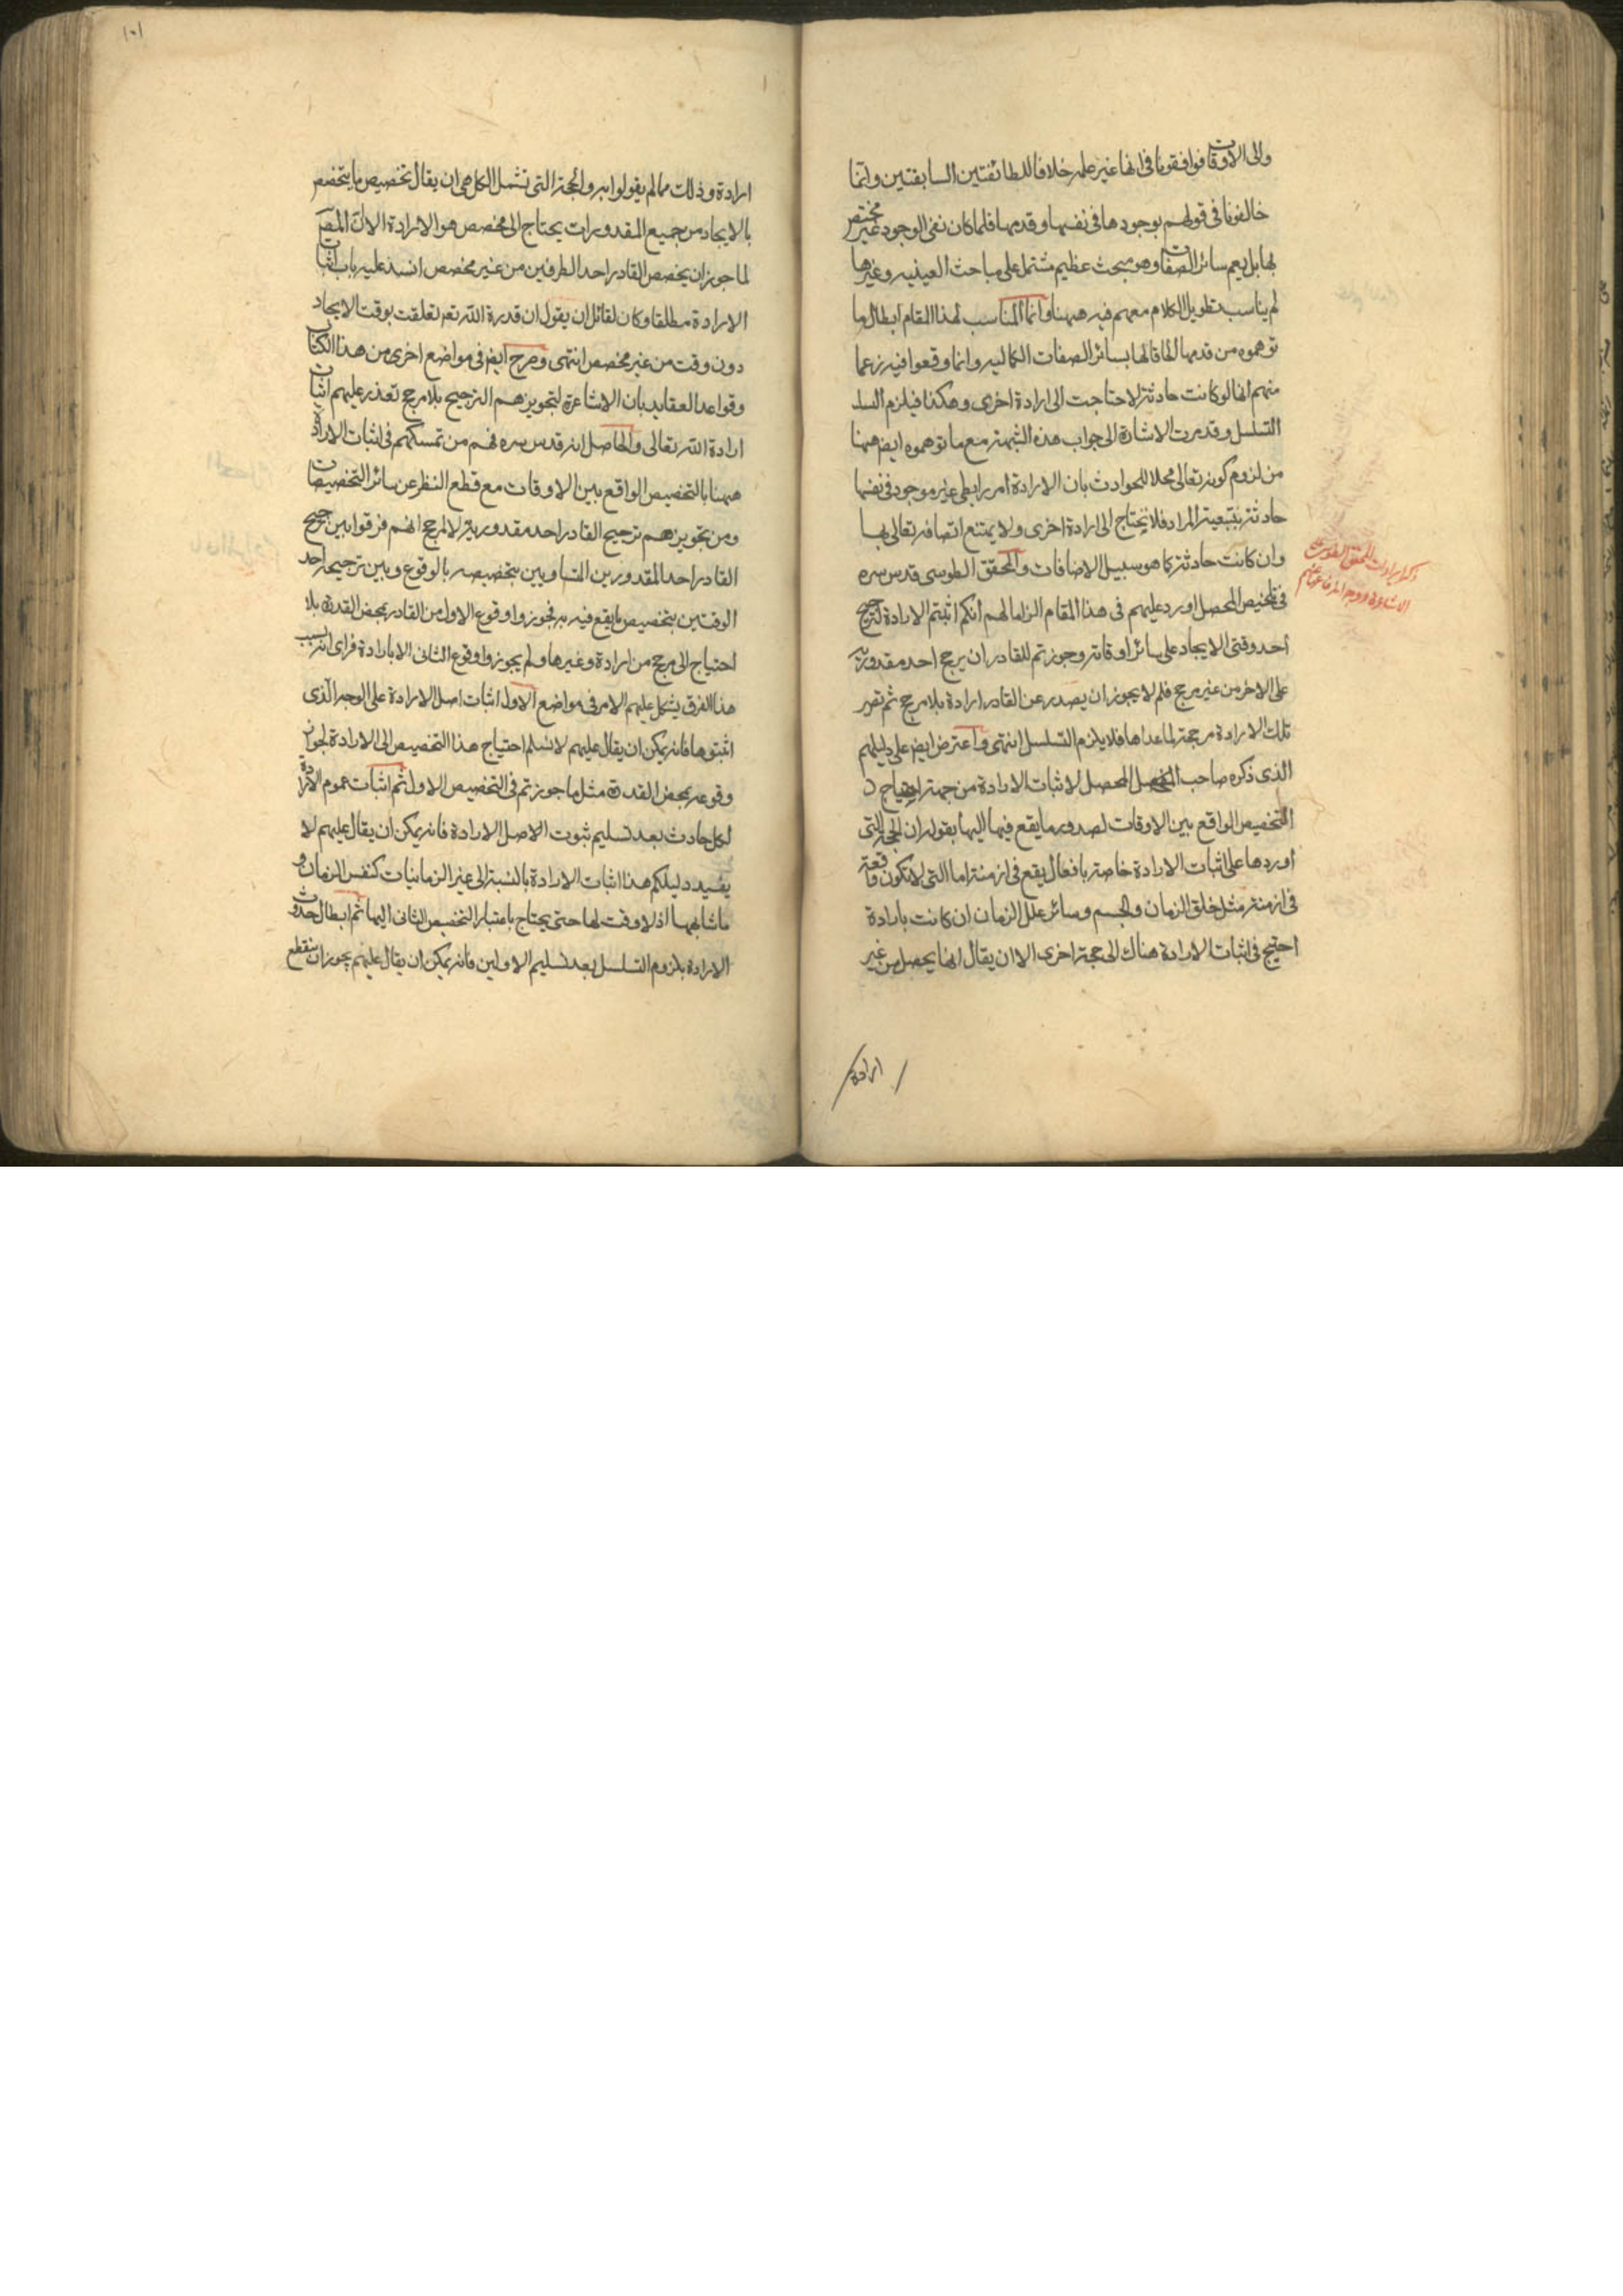 والى الاوقات فوافقونا فى انها غير علمه خلافا للطائفتين السابقتين وانما
خالفونا فى قولهم بوجودها فى نفسها وقدمها فلما كان نفى الوجود غير مختص
بها بل يعم سائر الصفات وهو مبحث عظيم مشتمل على مباحث العينيه وغيرها
لم يناسب تطويل الكلام معهم فيه ههنا وانما المناسب لهذا المقام ابطال ما
توهموه من قدمها الحاقا لها بسائر الصفات الكماليه وانما وقعوا فيه زعما
منهم انها لو كانت حادثة لاحتاجت الى ارادة اخرى وهكذا فيلزم السلـ
التسلسل وقد مرت الاشارة الى جواب هذه الشبهة مع ما توهموه ايض ههنا
من لزوم كونه تعالى محلا للحوادث بان الارادة امر رابطى غير موجود فى نفسها
حادثة بتبعية المراد فلا يحتاج الى ارادة اخرى ولا يمتنع اتصافه تعالى بها
وان كانت حادثة كما هو سبيل الاضافات والمحقق الطوسى قدس سره
فى تلخيص المحصل اورد عليهم فى هذا المقام الزاما لهم انكم اثبتم الارادة لترجيح
احد وقتى الايجاد على سائر اوقاته وجوزتم للقادر ان يرجح احد مقدوريه
على الاخر من غير مرجح فلم لا يجوز ان يصدر عن القادر ارادة بلا مرجح ثم تصير
تلك الارادة مرجحة لما عداها فلا يلزم التسلسل انتهى واعترض ايض على دليلهم
الذى ذكره صاحب المحصل لاثبات الارادة من جهة احتياج
التخصيص الواقع بين الاوقات لصدور ما يقع فيها اليها بقوله ان الحجة التى
أوردها على اثبات الارادة خاصة بافعال يقع فى ازمنة اما التى لا تكون واقعة
فى ازمنة مثل خلق الزمان والجسم وسائر علل الزمان ان كانت بارادة
احتيج فى اثبات الارادة هناك الى حجة اخرى الا ان يقال انها يحصل من غير
ارادة
ذكر ايرادات للمحقق الطوسى على
الاشاعرة
١٠١
ارادة وذلك مما لم يقولوا به والحجة التى تشمل الكل هى ان يقال تخصيص ما يتخصص
بالايجاد من جميع المقدورات يحتاج الى مخصص هو الارادة الا ان المص
لما جوز ان يخصص القادر احد الطرفين من غير مخصص انسد عليه باب اثبات
الارادة مطلقا وكان لقائل ان يقول ان قدرة الله تعه تعلقت بوقت الايجاد
دون وقت من غير مخصص انتهى وصرح ايض فى مواضع اخرى من هذا الكتاب
وقواعد العقايد بان الاشاعرة لتجويزهم الترجيح بلا مرجح تعذر عليهم اثبات
ارادة الله تعالى والحاصل انه قدس سره فهم من تمسكهم فى اثبات الارادة
ههنا بالتخصيص الواقع بين الاوقات مع قطع النظر عن سائر التخصيصات
ومن تجويزهم ترجيح القادر احد مقدوريه لا لمرجح انهم فرقوا بين ترجيح
القادر احد المقدورين المتساويين بتخصيصه بالوقوع وبين ترجيحه احد
الوقتين بتخصيص ما يقع فيه به فجوزوا وقوع الاول من القادر بمحض القدرة بلا
احتياج الى مرجح من ارادة وغيرها ولم يجوزوا وقوع الثانى الا بارادة فراى انه بسبب
هذا الفرق يشكل عليهم الامر فى مواضع الاول اثبات اصل الارادة على الوجه الذى
اثبتوها فانه يمكن ان يقال عليهم لا نسلم احتياج هذا التخصيص الى الارادة لجواز
وقوعه بمحض القدرة مثل ما جوزتم فى التخصيص الاول ثم اثبات عموم الارادة
لكل حادث بعد تسليم ثبوت الاصل الارادة فانه يمكن ان يقال عليهم لا
يفيد دليلكم هذا اثبات الارادة بالنسبة الى غير الزمانيات كنفس الزمان و
ما شابهها اذ لا وقت لها حتى يحتاج باعتبار التخصيص الثانى اليها ثم ابطال حدوث
الارادة بلزوم التسلسل بعد تسليم الاولين فانه يمكن ان يقال عليهم يجوز ان ينقطع